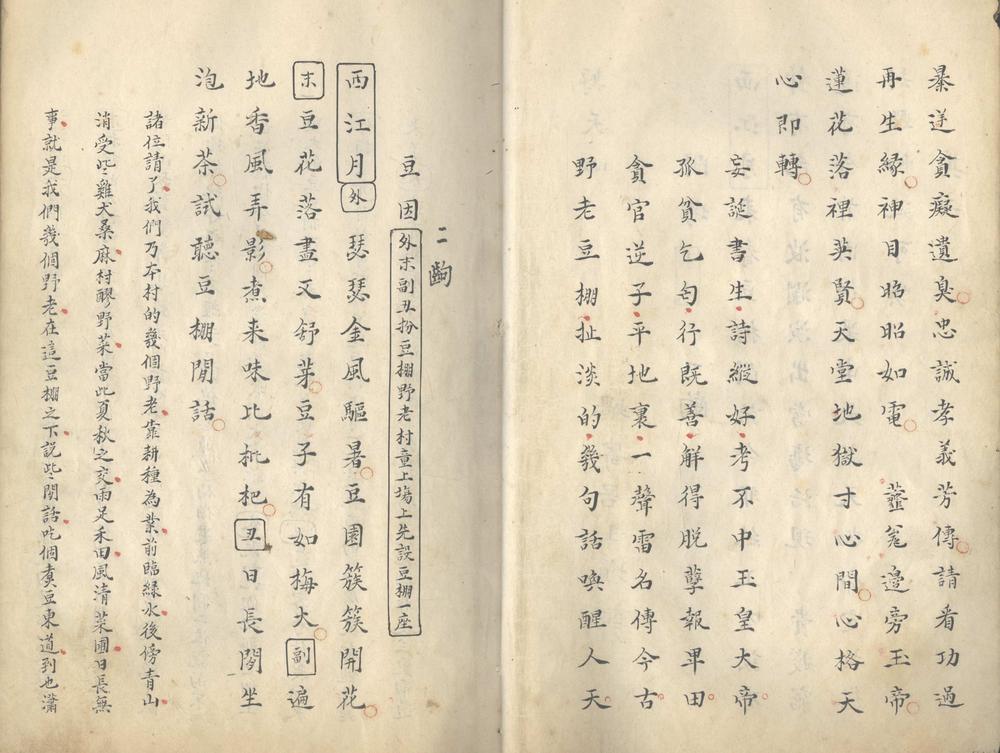 暴逆貪癡遺臭忠誠孝義芳傳請看功過
再生緣神目昭昭如電 虀瓮邊旁玉帝
蓮花落裡英賢天堂地獄寸心間心格天
心即轉
妄誕書生詩縱好考不中玉皇大帝
孤貧乞匄行既善解得脫孽報早田
貪官逆子平地裏一聲雷名傳今古
野老豆棚扯淡的幾句話喚醒人天
二齣
豆因 外末副丑扮豆棚野老村童上場上先設豆棚一座
西江月 外 瑟瑟金風驅暑豆園簇簇開花
末 豆花落盡又舒芽豆子有如梅大 副 遍
地香風弄影煮來味比枇杷 丑 日長閒坐
泡新茶試聽豆棚閒話
諸位請了我們乃本村的幾個野老靠耕種為業前臨綠水後傍青山
消受些雞犬桑麻村醪野菜當此夏秋之交雨足禾田風清菜圃日長無
事就是我們幾個野老在這豆棚之下說些閒話吃個煑豆東道到也瀟